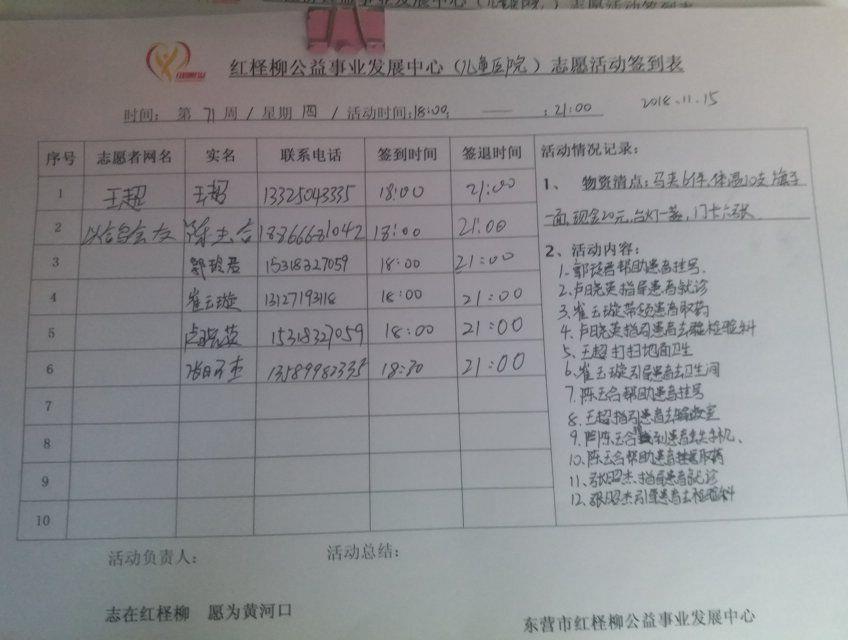 红柽柳公益事业发展中心（儿童医院）志愿活动签到表
时间：第 71 周 / 星期 四 / 活动时间：18:00 — : 21:00 2018.11.15
序号 志愿者网名 实名 联系电话 签到时间 签退时间 活动情况记录：
1 王超 王超 13325043335 18:00 21:00
2 陈玉合 18366681042 18:00 21:00
3 郭玲君 15318327059 18:00 21:00
4 崔云璇 13127193118 18:00 21:00
5 卢晓英 15318327059 18:00 21:00
6 13589982335 18:30 21:00
7
8
9
10
1、 物资清点：马夹6件,体温10支,旗子
一面,现金20元,台灯一盏,门卡六张
2、活动内容：
1.郭玲君帮助患者挂号.
2.卢晓英指导患者就诊
3.崔云璇带领患者取药
4.卢晓英指引患者去检验科
5.王超打扫地面卫生
6.崔云璇引导患者去卫生间
7.陈玉合帮助患者挂号
8.王超指引患者去输液室
9.陈玉合 到患者丢失手机、
10.陈玉合帮助患者 取药
11.张昭杰指导患者就诊
12.张昭杰引导患者去检验科
活动负责人： 活动总结：
志在红柽柳 愿为黄河口
东营市红柽柳公益事业发展中心